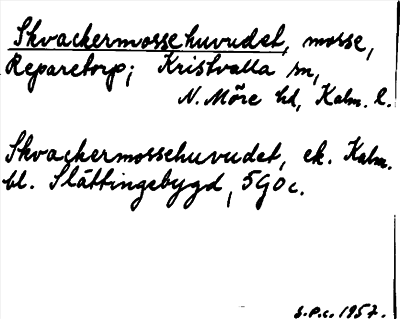 Skvackermossehuvudet, mosse,
Reparetorp; Kristvalla sn,
N. Möre hd, Kalm. l.
Skvackermossehuvudet, ek. Kalm.
bl. Slättingebygd, 5G0c.
s.p.c. 1957.